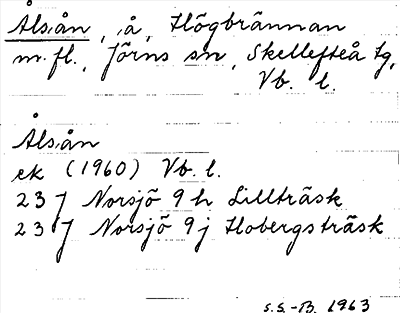 Ålsån, å, Högbrännan
m.fl., Jörns sn, Skellefteå tg,
Vb. l.
Ålsån
ek (1960) Vb. l.
237 Norsjö 9 h Lillträsk
237 Norsjö 9 j Hobergsträsk
S.S.-B. 1963